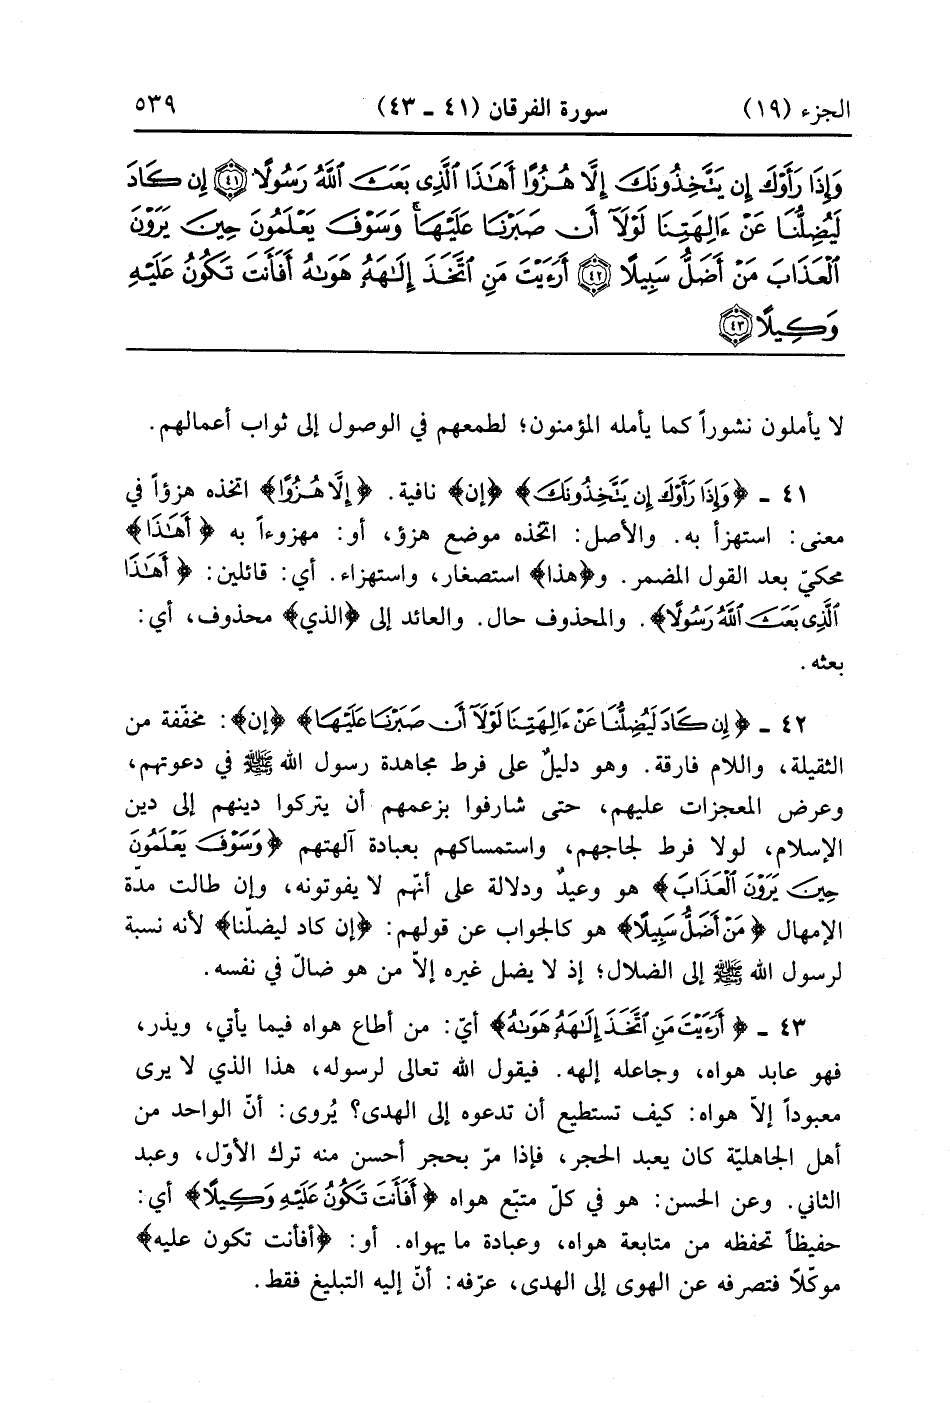 الجزء (١٩) سورة الفرقان (٤١ - ٤٣) ٥٣٩
وَإِذَا رَأَوْكَ إِن يَتَّخِذُونَكَ إِلَّا هُزُوًا أَهَٰذَا ٱلَّذِى بَعَثَ ٱللَّهُ رَسُولًا ﴿٤١﴾ إِن كَادَ
لَيُضِلُّنَا عَنْ ءَالِهَتِنَا لَوْلَآ أَن صَبَرْنَا عَلَيْهَا ۚ وَسَوْفَ يَعْلَمُونَ حِينَ يَرَوْنَ
ٱلْعَذَابَ مَنْ أَضَلُّ سَبِيلًا ﴿٤٢﴾ أَرَءَيْتَ مَنِ ٱتَّخَذَ إِلَٰهَهُۥ هَوَىٰهُ أَفَأَنتَ تَكُونُ عَلَيْهِ
وَكِيلًا ﴿٤٣﴾
لا يأملون نشوراً كما يأمله المؤمنون؛ لطمعهم في الوصول إلى ثواب أعمالهم.
٤١ - ﴿وَإِذَا رَأَوْكَ إِن يَتَّخِذُونَكَ﴾ ﴿إن﴾ نافية. ﴿إِلَّا هُزُوًا﴾ اتخذه هزؤاً في
معنى: استهزأ به. والأصل: اتخذه موضع هزؤ، أو: مهزوءاً به ﴿أَهَٰذَا﴾
محكيّ بعد القول المضمر. و﴿هذا﴾ استصغار، واستهزاء. أي: قائلين: ﴿أَهَٰذَا
ٱلَّذِى بَعَثَ ٱللَّهُ رَسُولًا﴾. والمحذوف حال. والعائد إلى ﴿الذي﴾ محذوف، أي:
بعثه.
٤٢ - ﴿إِن كَادَ لَيُضِلُّنَا عَنْ ءَالِهَتِنَا لَوْلَآ أَن صَبَرْنَا عَلَيْهَا﴾ ﴿إن﴾: مخفّفة من
الثقيلة، واللام فارقة. وهو دليلٌ على فرط مجاهدة رسول الله ﷺ في دعوتهم،
وعرض المعجزات عليهم، حتى شارفوا بزعمهم أن يتركوا دينهم إلى دين
الإسلام، لولا فرط لجاجهم، واستمساكهم بعبادة آلهتهم ﴿وَسَوْفَ يَعْلَمُونَ
حِينَ يَرَوْنَ ٱلْعَذَابَ﴾ هو وعيدٌ ودلالة على أنهّم لا يفوتونه، وإن طالت مدّة
الإمهال ﴿مَنْ أَضَلُّ سَبِيلًا﴾ هو كالجواب عن قولهم: ﴿إن كاد ليضلّنا﴾ لأنه نسبة
لرسول الله ﷺ إلى الضلال؛ إذ لا يضل غيره إلاّ من هو ضالّ في نفسه.
٤٣ - ﴿أَرَءَيْتَ مَنِ ٱتَّخَذَ إِلَٰهَهُۥ هَوَىٰهُ﴾ أيّ: من أطاع هواه فيما يأتي، ويذر،
فهو عابد هواه، وجاعله إلهه. فيقول الله تعالى لرسوله، هذا الذي لا يرى
معبوداً إلاّ هواه: كيف تستطيع أن تدعوه إلى الهدى؟ يُروى: أنّ الواحد من
أهل الجاهليّة كان يعبد الحجر، فإذا مرّ بحجر أحسن منه ترك الأوّل، وعبد
الثاني. وعن الحسن: هو في كلّ متبّع هواه ﴿أَفَأَنتَ تَكُونُ عَلَيْهِ وَكِيلًا﴾ أي:
حفيظاً تحفظه من متابعة هواه، وعبادة ما يهواه. أو: ﴿أفأنت تكون عليه﴾
موكّلاً فتصرفه عن الهوى إلى الهدى، عرّفه: أنّ إليه التبليغ فقط.